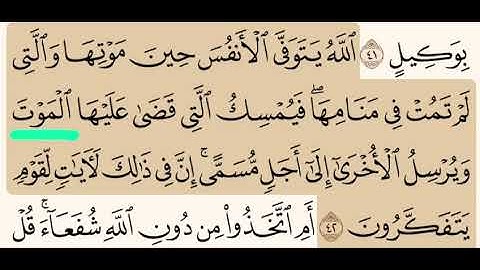 بِوَكِيلٍ ٤١ ٱللَّهُ يَتَوَفَّى ٱلْأَنفُسَ حِينَ مَوْتِهَا وَٱلَّتِى
لَمْ تَمُتْ فِى مَنَامِهَا ۖ فَيُمْسِكُ ٱلَّتِى قَضَىٰ عَلَيْهَا ٱلْمَوْتَ
وَيُرْسِلُ ٱلْأُخْرَىٰٓ إِلَىٰٓ أَجَلٍ مُّسَمًّى ۚ إِنَّ فِى ذَٰلِكَ لَءَايَٰتٍ لِّقَوْمٍ
يَتَفَكَّرُونَ ٤٢ أَمِ ٱتَّخَذُوا۟ مِن دُونِ ٱللَّهِ شُفَعَآءَ ۚ قُلْ